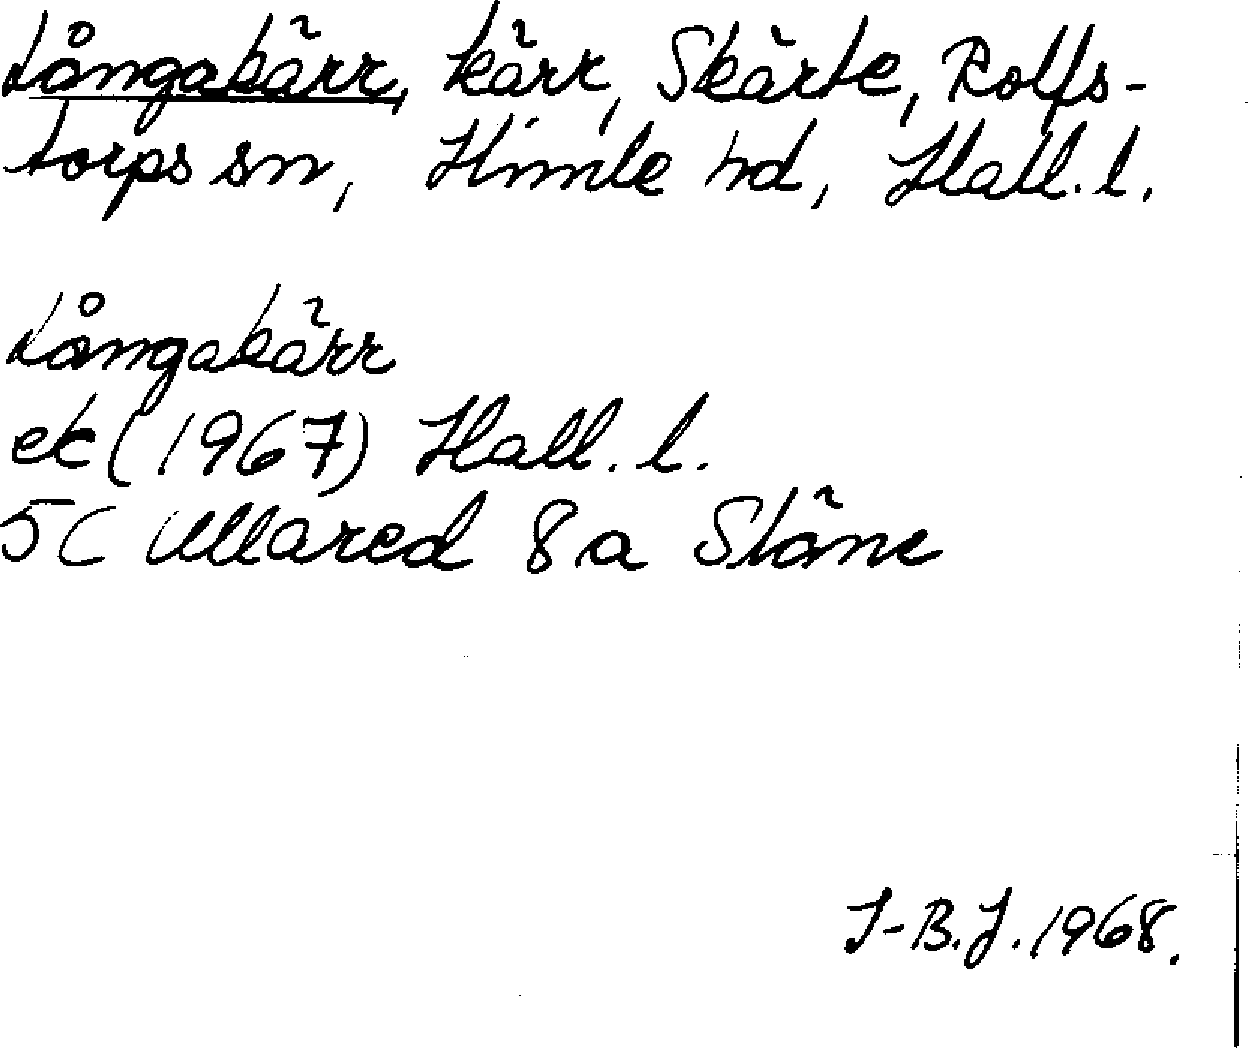 Långakärr, kärr, Skärte, Rolfs-
torps sn, Himle hd, Hall. l.
Långakärr
ek (1967) Hall. l.
5C Ullared 8a Stäne
I-B.J. 1968.